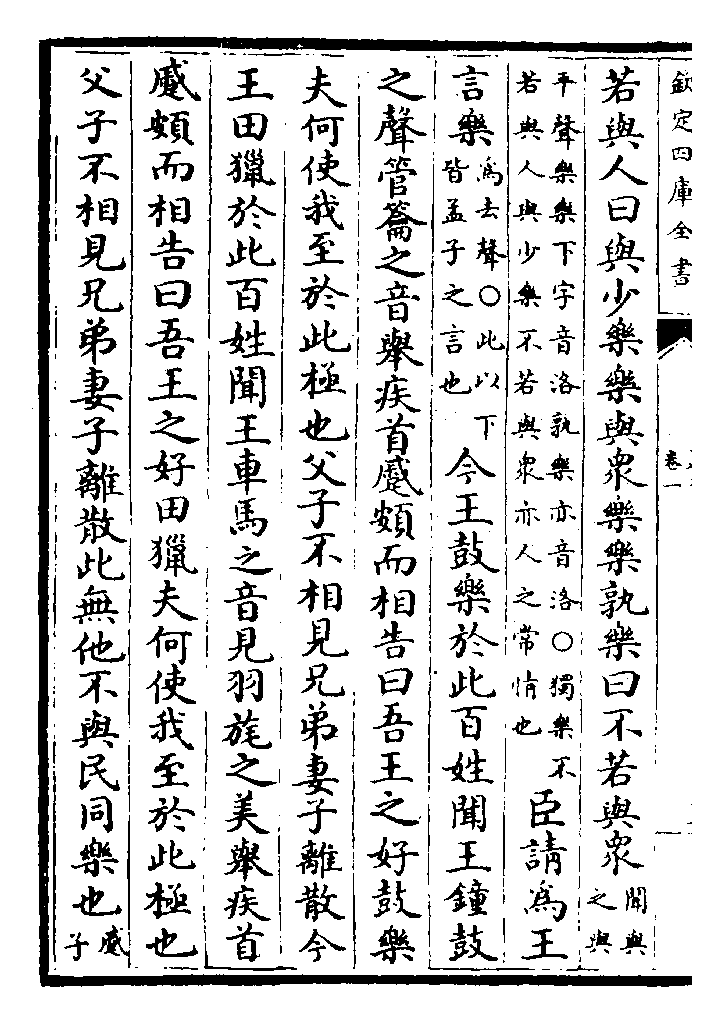 欽定四庫全書
卷一
若與人曰與少樂樂與衆樂樂孰樂曰不若與衆聞與之與
平聲樂樂下字音洛孰樂亦音洛○獨樂不若與人與少樂不若與衆亦人之常情也臣請爲王
言樂爲去聲○此以下皆孟子之言也今王鼓樂於此百姓聞王鐘鼓
之聲管籥之音舉疾首蹙頞而相告曰吾王之好鼓樂
夫何使我至於此極也父子不相見兄弟妻子離散今
王田獵於此百姓聞王車馬之音見羽旄之美舉疾首
蹙頞而相告曰吾王之好田獵夫何使我至於此極也
父子不相見兄弟妻子離散此無他不與民同樂也蹙子